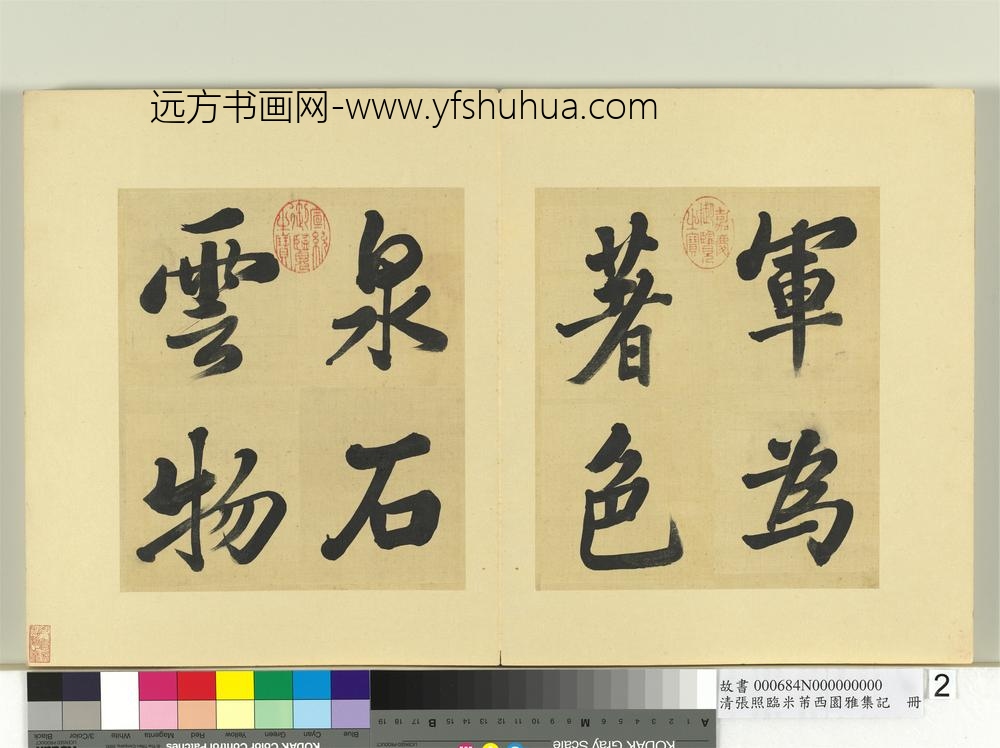 远方书画网-www.yfshuhua.com
軍為
著色
泉石
雲物
嘉慶御覽之寶
宣統御覽之寶
故書 000684N000000000
清張照臨米芾西園雅集記 冊
2
Black
3/Color
White
Magenta
Red
Yellow
Green
Cyan
Blue
KODAK Color Control Patches
KODAK Gray Scale
A 1 2 3 4 5 6 M 8 9 10 11 12 13 14 15 B 17 18 19